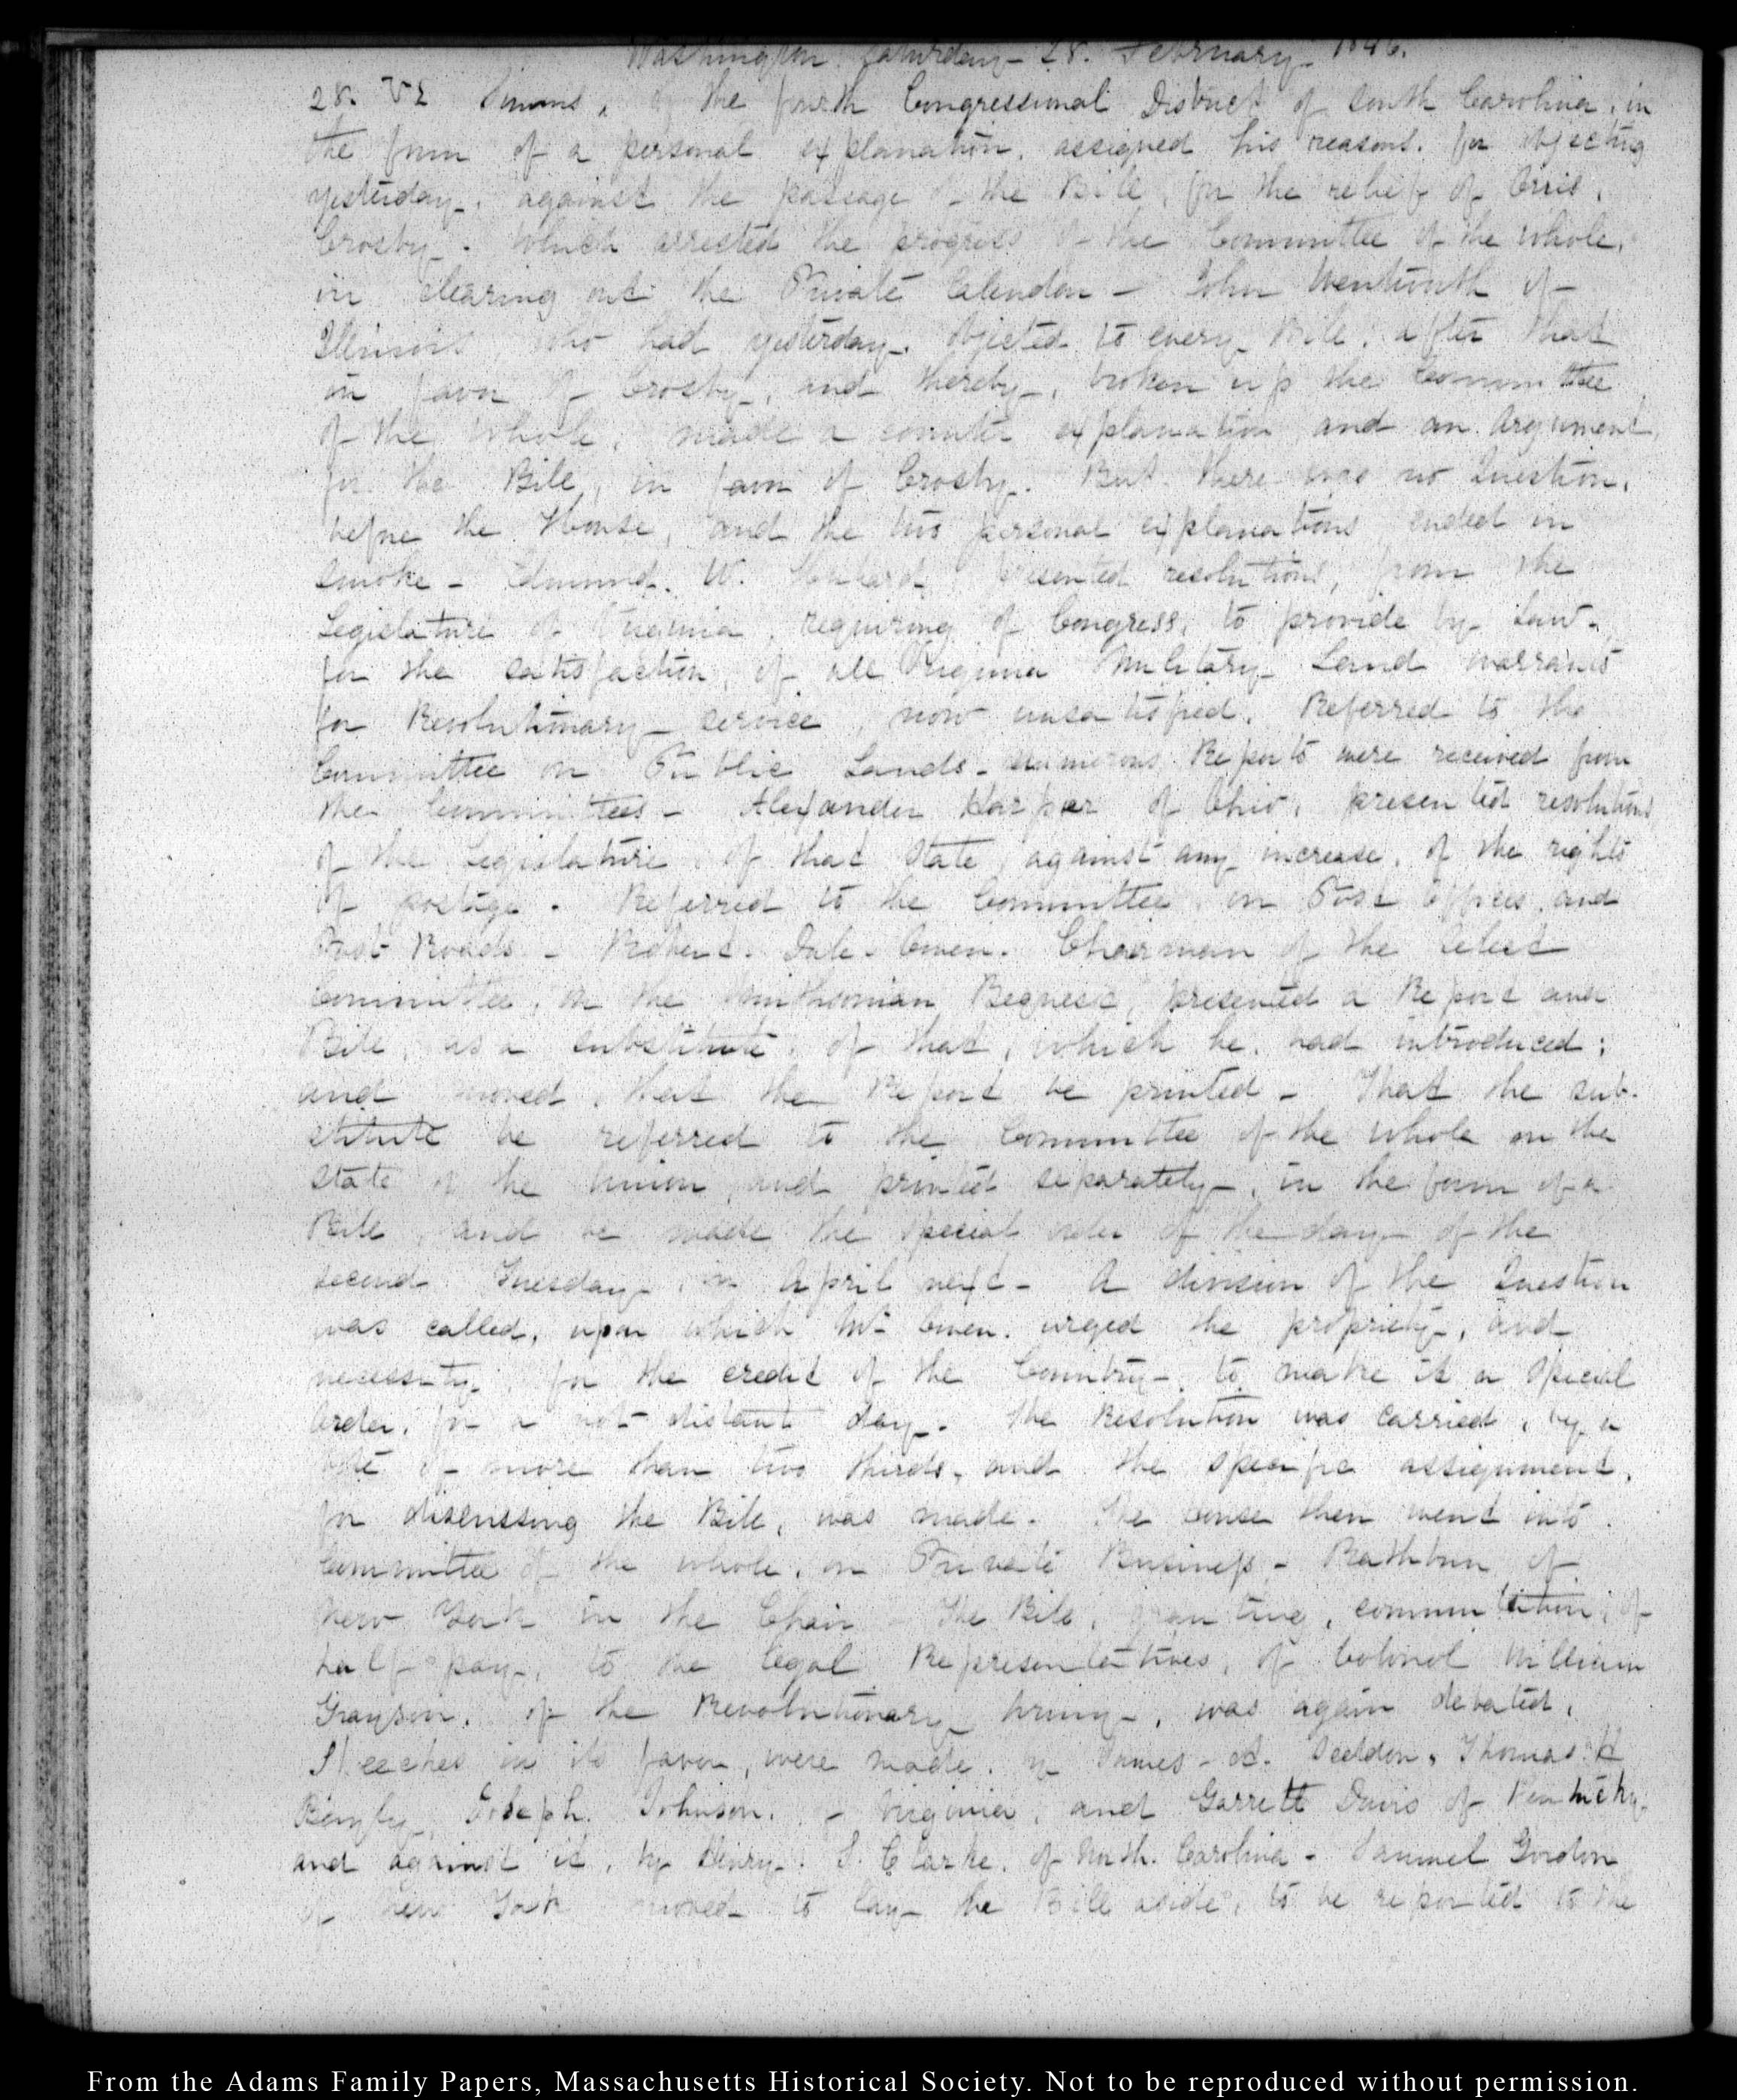 Washington Saturday 28. February 1846.
28. VI. Simms, of the fourth Congressional District of South Carolina, in
the form of a personal explanation, assigned his reasons for objecting
yesterday, against the passage of the Bill, for the relief of Orris
Crosby. which arrested the progress of the Committee of the whole,
in clearing out the Private Calendar - John Wentworth of
Illinois, who had yesterday objected to every Bill, after that
in favor of Crosby, and thereby, broken up the Committee
of the whole, made a counter explanation and an Argument,
for the Bill, in favor of Crosby. But there was no Question,
before the House, and the two personal explanations ended in
smoke - Edmund W. Hubard presented resolutions, from the
Legislature of Virginia, requiring of Congress, to provide by Law,
for the satisfaction, of all Virginia Military Land warrants
for Revolutionary service, now unsatisfied. Referred to the
Committee on Public Lands - numerous Reports were received from
the Committees - Alexander Harper of Ohio, presented resolutions
of the Legislature of that State against any increase, of the rights
of postage. Referred to the Committee on Post offices, and
Post Roads - Robert Dale Owen. Chairman of the select
Committee, on the Smithsonian Bequest, presented a Report and
Bill, as a substitute, of that, which he had introduced;
and moved, that the Report be printed - That the sub-
stitute be referred to the Committee of the whole on the
State of the Union, and printed separately, in the form of a
Bill, and be made the special order of the day of the
second Tuesday, in April next - A division of the Question
was called, upon which Mr Owen urged the propriety, and
necessity, for the credit of the Country, to make it a special
order, for a not distant day. The Resolution was carried, by a
vote of more than two thirds, and the specific assignment,
for discussing the Bill, was made. The House then went into
Committee of the whole, on Private Business - Rathbun of
New York in the Chair The Bill, granting, commutation, of
half pay, to the legal Representatives, of Colonel William
Grayson, of the Revolutionary Army, was again debated,
Speeches in its favor, were made, by James A. Seddon, Thomas H
Bayly, Joseph Johnson, of Virginia, and Garrett Davis of Kentucky.
and against it, by Henry S. Clarke, of North Carolina - Samuel Gordon
of New York moved to lay the Bill aside, to be reported to the
From the Adams Family Papers, Massachusetts Historical Society. Not to be reproduced without permission.